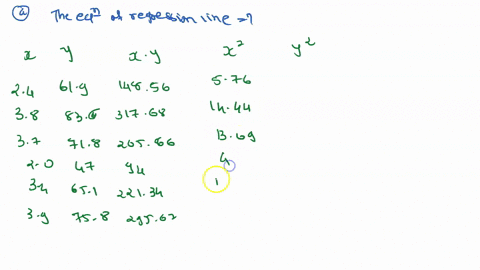 a The eqⁿ of regression line = ?
x y x·y x² y²
2.4 61.9 148.56 5.76
3.8 83.6 317.68 14.44
3.7 71.8 265.66 13.69
2.0 47 94 4
3.4 65.1 221.34 1
3.9 75.8 295.62